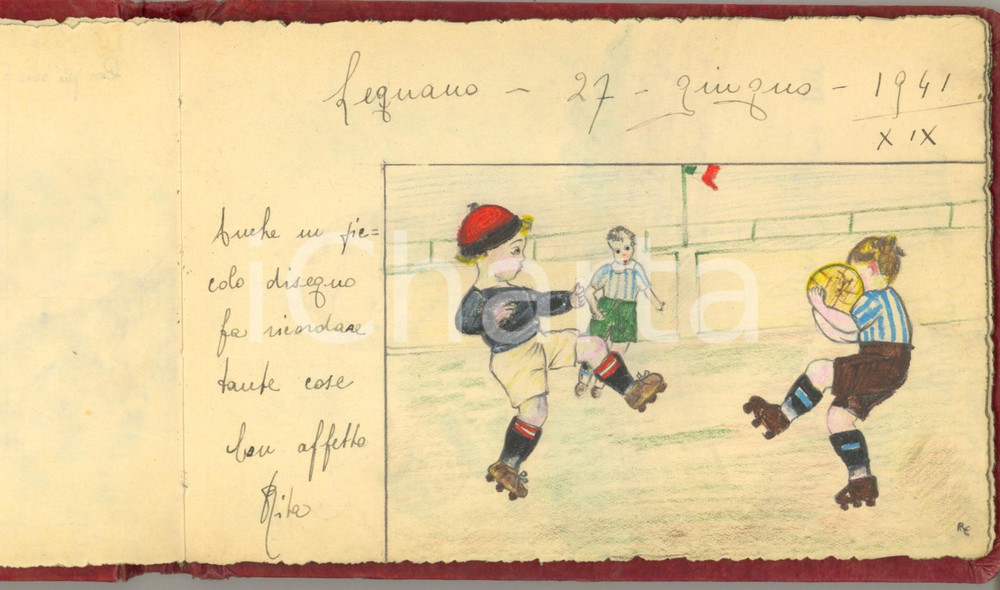 Legnano - 27 - giugno - 1941
XIX
Anche un pic=
colo disegno
fa ricordare
tante cose
Con affetto
Rita
iCharta
RE